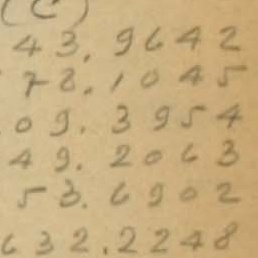 (C)
43.9642
78.1045
09.3954
49.2063
53.6902
632.2248